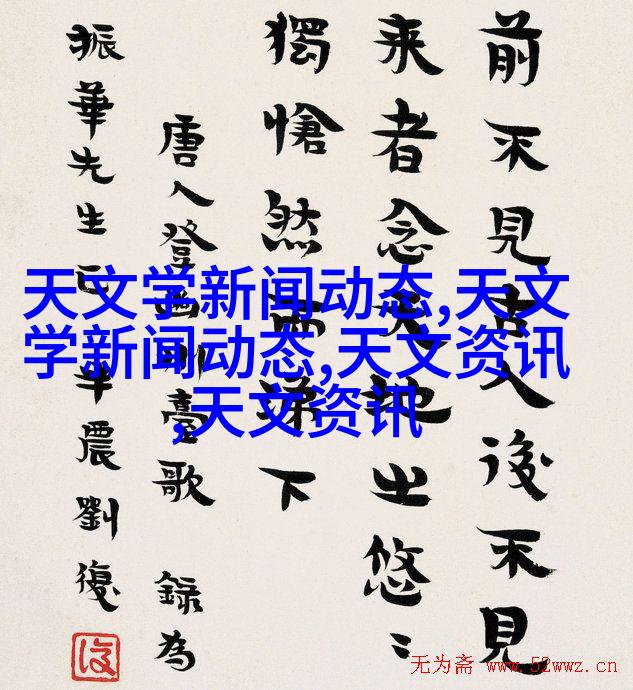 前不見古人後不見
来者念天地之悠〻
獨愴然而涕下
唐人登幽州臺歌 錄為
振華先生 半農劉復
天文学新闻动态,天文
学新闻动态,天文资讯
,天文资讯
无为斋 www.52wwz.cn